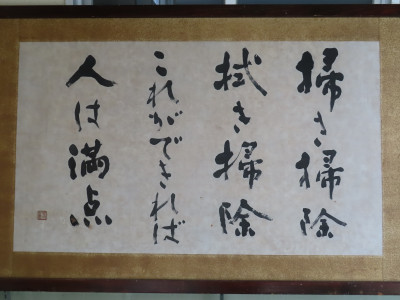 掃き掃除
拭き掃除
これができれば
人は満点